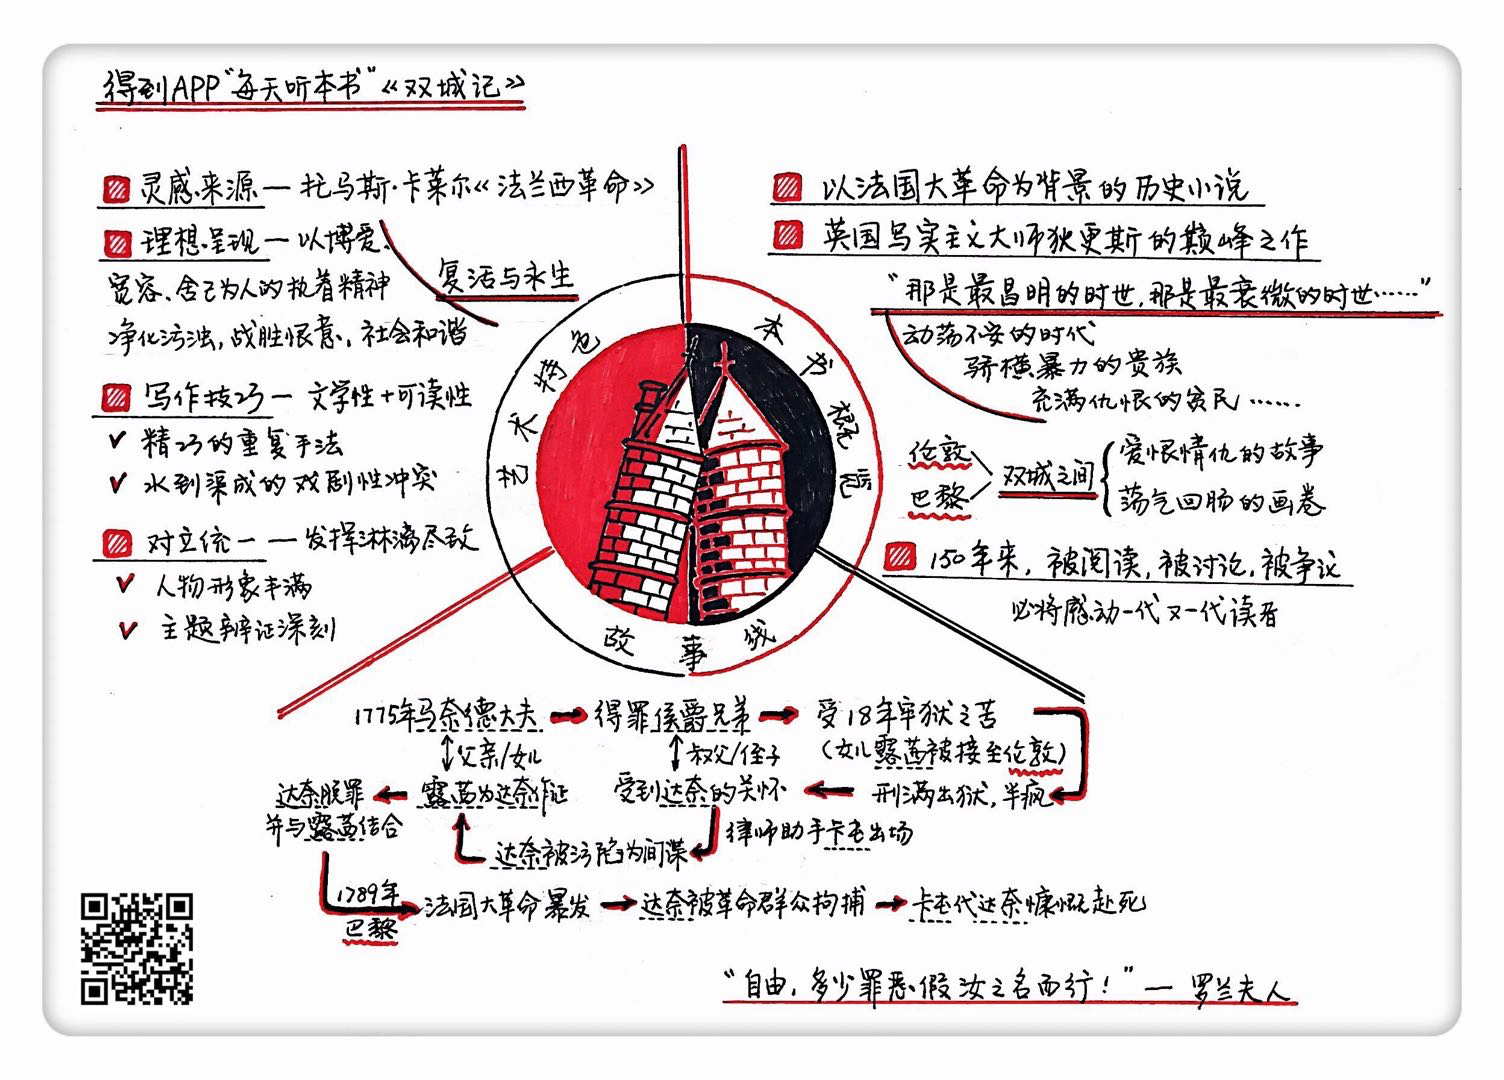 得到APP“每天听本书”《双城记》
灵感来源—托马斯·卡莱尔《法兰西革命》
理想呈现—以博爱、
宽容、舍己为人的执着精神
净化污浊,战胜恨意,社会和谐
复活与永生
写作技巧—文学性+可读性
✓ 精巧的重复手法
✓ 水到渠成的戏剧性冲突
对立统一—发挥淋漓尽致
✓ 人物形象丰满
✓ 主题辨证深刻
艺术特色
本书概览
故事线
以法国大革命为背景的历史小说
英国写实主义大师狄更斯的巅峰之作
“那是最昌明的时世,那是最衰微的时世……”
动荡不安的时代
骄横暴力的贵族
充满仇恨的贫民……
伦敦
巴黎
双城之间
爱恨情仇的故事
荡气回肠的画卷
150年来,被阅读,被讨论,被争议
必将感动一代又一代读者
1775年马奈德大夫 → 得罪侯爵兄弟 → 受18年牢狱之苦
父亲/女儿
叔父/侄子
(女儿露茜被接至伦敦)
达奈脱罪 ← 露茜为达奈作证
受到达奈的关怀 ← 刑满出狱,半疯
并与露茜结合
达奈被污陷为间谍
律师助手卡屯出场
1789年
巴黎
法国大革命暴发 → 达奈被革命群众拘捕 → 卡屯代达奈慷慨赴死
“自由,多少罪恶假汝之名而行!”— 罗兰夫人